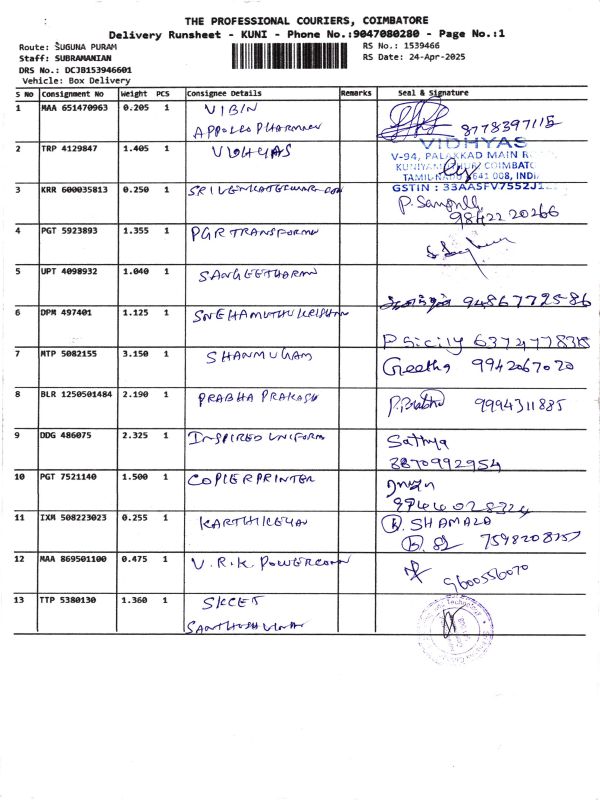 THE PROFESSIONAL COURIERS, COIMBATORE
Delivery Runsheet - KUNI - Phone No.:9047080280 - Page No.:1
Route: SUGUNA PURAM
RS No.: 1539466
Staff: SUBRAMANIAN
RS Date: 24-Apr-2025
DRS No.: DCJB153946601
Vehicle: Box Delivery
S NO Consignment No Weight PCS Consignee Details Remarks Seal & Signature
1 MAA 651470963 0.205 1 VIBIN
APPOLLO PHARMACY 8778397115
VIDHYAS
2 TRP 4129847 1.405 1 VIDHYAS
V-94, PALAKKAD MAIN
COIMBATO
TAMIL NADU 641 008, INDIA
GSTIN : 33AASFV7552J1
3 KRR 600035813 0.250 1 SRI VENKATESWARA
98422 20266
4 PGT 5923893 1.355 1 PGR TRANSFORMS
5 UPT 4098932 1.040 1 SANGEETHARAN
9486772586
6 DPM 497401 1.125 1 SNEHAMUTHUKRISHNAN
P Sicily 6374778318
7 MTP 5082155 3.150 1 SHANMUGAM Geetha 9942067020
8 BLR 1250501484 2.190 1 PRABHA PRAKASH 9994311885
9 DDG 486075 2.325 1 INSPIRED UNIFORM Sathya
8870992954
10 PGT 7521140 1.500 1 COPIER PRINTER
11 IXM 508223023 0.255 1 KARTHIKEYAN K. SHAMALA
12 MAA 869501100 0.475 1 V.R.K. POWERCONN
9600556070
13 TTP 5380130 1.360 1 SKCET